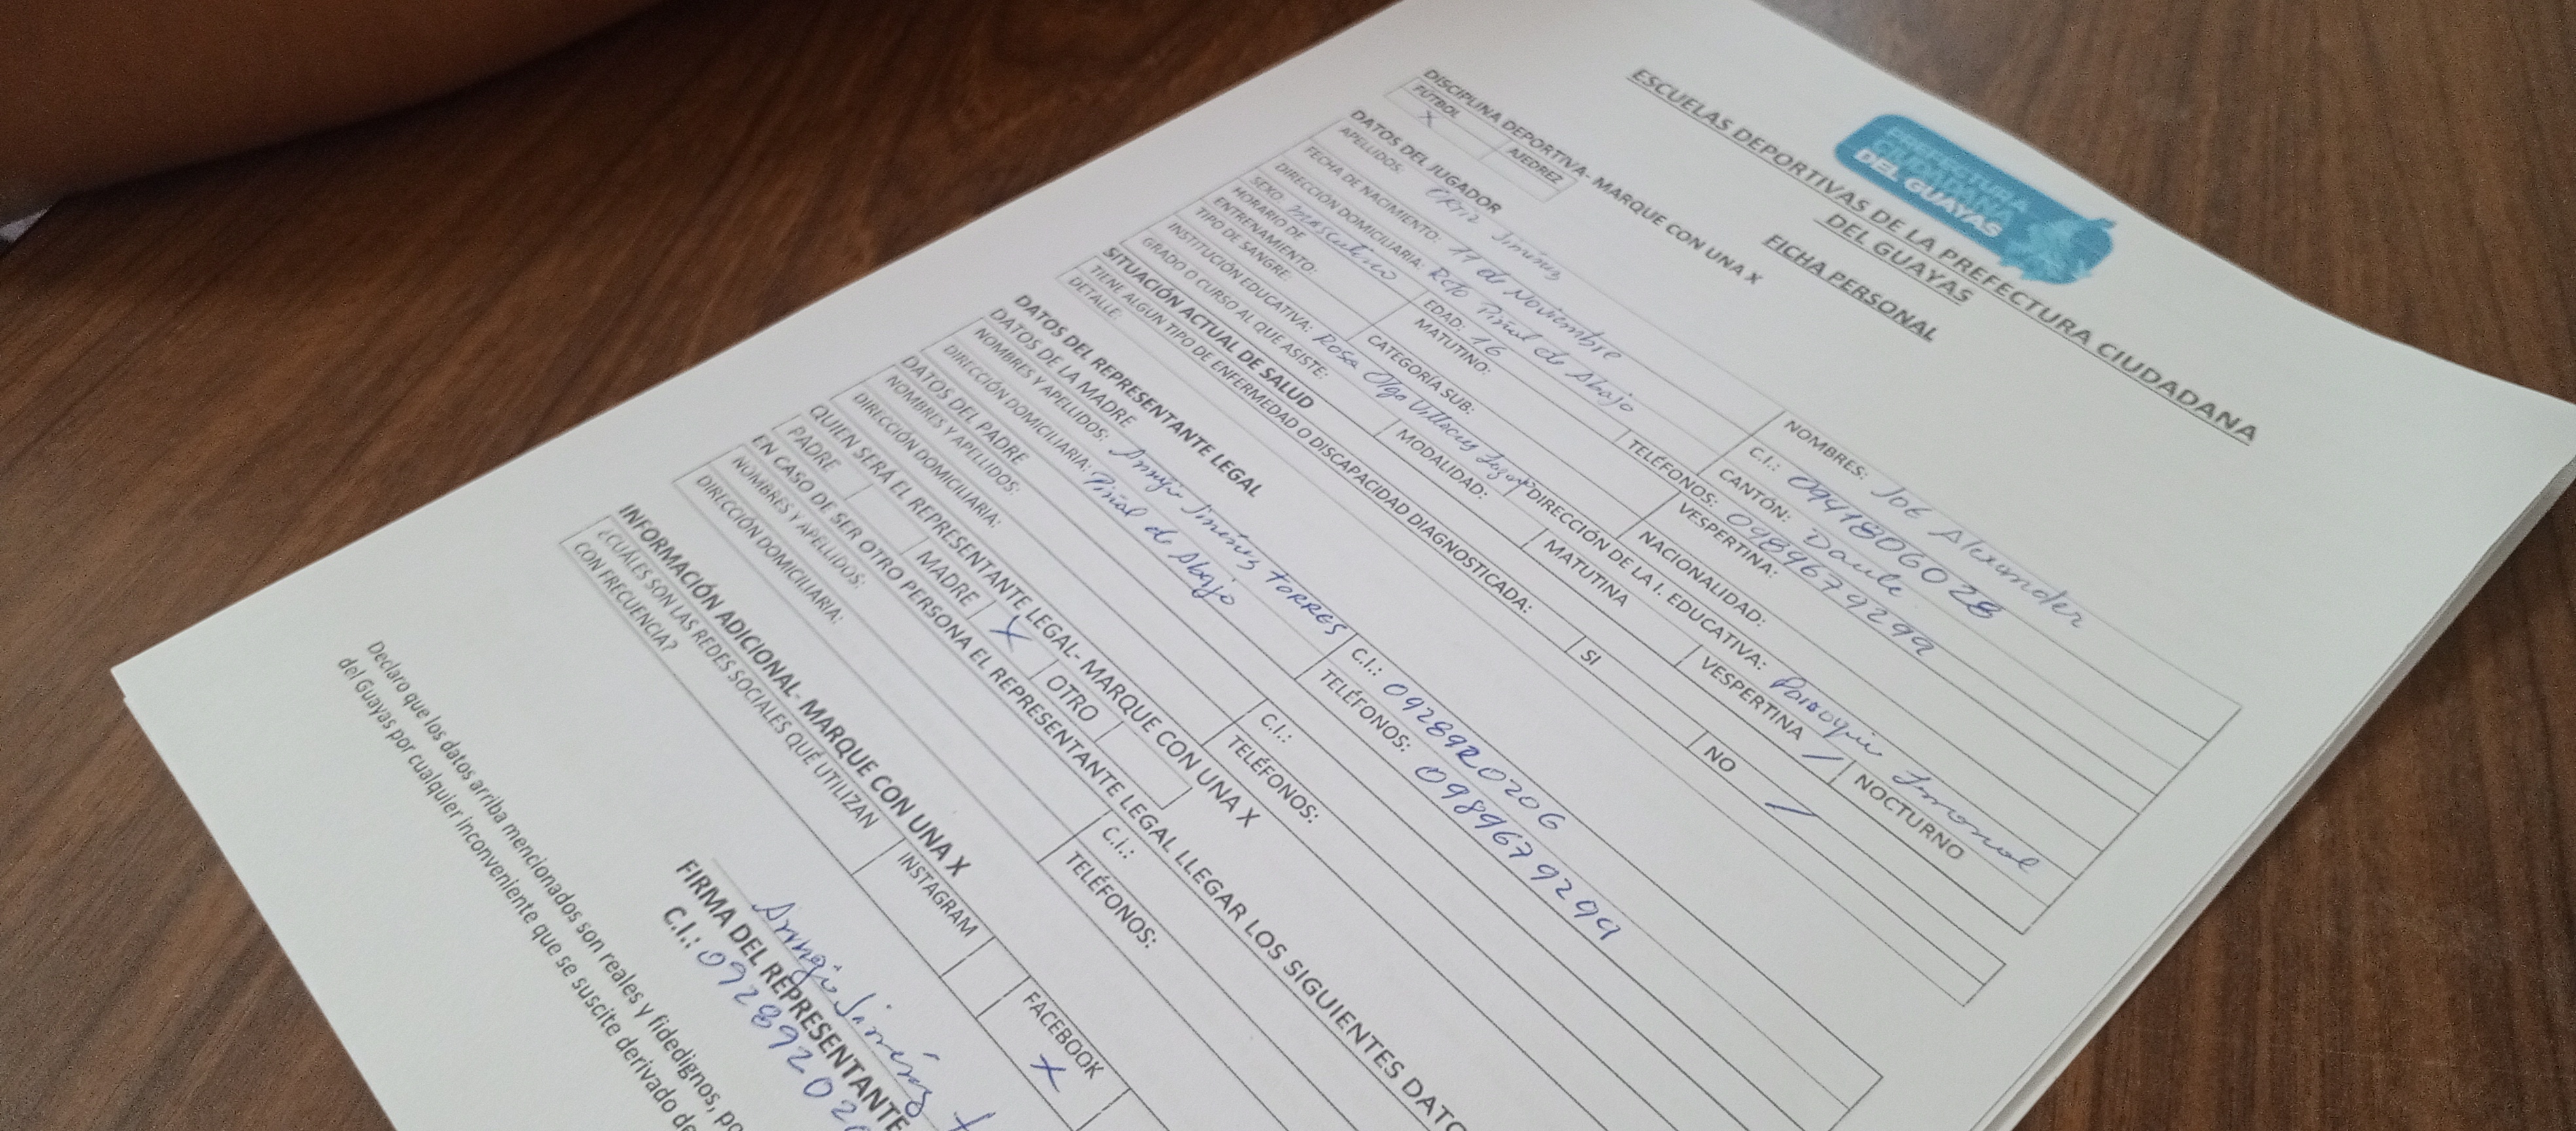 PREFECTURA
CIUDADANA
DEL GUAYAS
ESCUELAS DEPORTIVAS DE LA PREFECTURA CIUDADANA
DEL GUAYAS
FICHA PERSONAL
DISCIPLINA DEPORTIVA- MARQUE CON UNA X
FÚTBOL X AJEDREZ
DATOS DEL JUGADOR
APELLIDOS: Ortiz Jiménez NOMBRES: Joe Alexander
FECHA DE NACIMIENTO: 11 de Noviembre C.I.: 0941806028
DIRECCIÓN DOMICILIARIA: Rcto Piñal de Abajo CANTÓN: Daule
SEXO: masculino EDAD: 16 TELÉFONOS: 0989679299
HORARIO DE
ENTRENAMIENTO: MATUTINO: VESPERTINA:
TIPO DE SANGRE: CATEGORÍA SUB: NACIONALIDAD:
INSTITUCIÓN EDUCATIVA: Rosa Olga Villacis DIRECCIÓN DE LA I. EDUCATIVA:
GRADO O CURSO AL QUE ASISTE: MODALIDAD: MATUTINA VESPERTINA / NOCTURNO
SITUACIÓN ACTUAL DE SALUD
TIENE ALGUN TIPO DE ENFERMEDAD O DISCAPACIDAD DIAGNOSTICADA: SI NO /
DETALLE:
DATOS DEL REPRESENTANTE LEGAL
DATOS DE LA MADRE
NOMBRES Y APELLIDOS: Jiménez Torres C.I.: 0928920206
DIRECCIÓN DOMICILIARIA: Piñal de Abajo TELÉFONOS: 0989679299
DATOS DEL PADRE
NOMBRES Y APELLIDOS: C.I.:
DIRECCIÓN DOMICILIARIA: TELÉFONOS:
QUIEN SERÁ EL REPRESENTANTE LEGAL- MARQUE CON UNA X
PADRE MADRE X OTRO
EN CASO DE SER OTRO PERSONA EL REPRESENTANTE LEGAL LLEGAR LOS SIGUIENTES DATO
NOMBRES Y APELLIDOS: C.I.:
DIRECCIÓN DOMICILIARIA: TELÉFONOS:
INFORMACIÓN ADICIONAL- MARQUE CON UNA X
¿CUÁLES SON LAS REDES SOCIALES QUE UTILIZAN
CON FRECUENCIA? INSTAGRAM FACEBOOK X
Jiménez
FIRMA DEL REPRESENTANTE
C.I.: 092892020
Declaro que los datos arriba mencionados son reales y fidedignos, po
del Guayas por cualquier inconveniente que se suscite derivado de